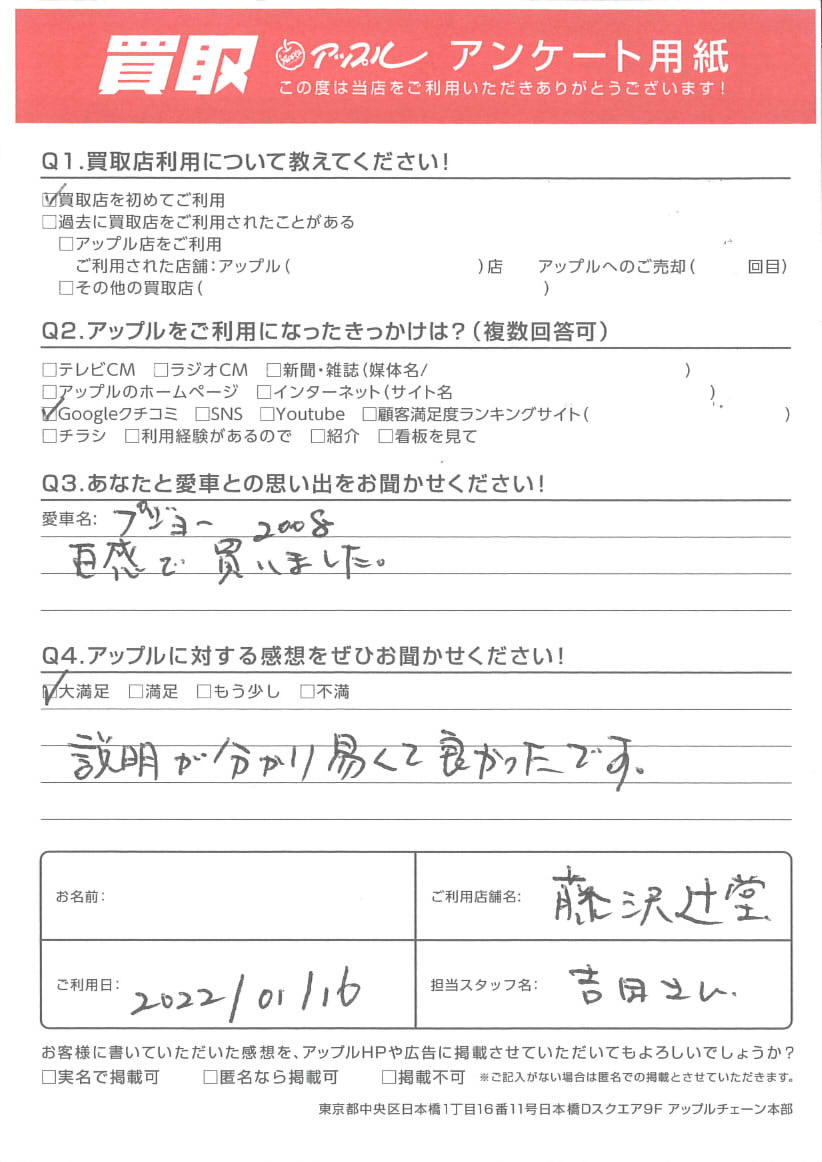 買取 アップル アンケート用紙
この度は当店をご利用いただきありがとうございます!
Q1.買取店利用について教えてください!
☑買取店を初めてご利用
□過去に買取店をご利用されたことがある
□アップル店をご利用
ご利用された店舗:アップル( )店 アップルへのご売却( 回目)
□その他の買取店( )
Q2.アップルをご利用になったきっかけは?(複数回答可)
□テレビCM □ラジオCM □新聞・雑誌(媒体名/ )
□アップルのホームページ □インターネット(サイト名 )
☑Googleクチコミ □SNS □Youtube □顧客満足度ランキングサイト( )
□チラシ □利用経験があるので □紹介 □看板を見て
Q3.あなたと愛車との思い出をお聞かせください!
愛車名: プジョー 2008
直感で買いました。
Q4.アップルに対する感想をぜひお聞かせください!
☑大満足 □満足 □もう少し □不満
説明が分かり易くて良かったです。
お名前: ご利用店舗名: 藤沢辻堂
ご利用日: 2022/01/16 担当スタッフ名: 吉田さん
お客様に書いていただいた感想を、アップルHPや広告に掲載させていただいてもよろしいでしょうか?
□実名で掲載可 □匿名なら掲載可 □掲載不可 ※ご記入がない場合は匿名での掲載とさせていただきます。
東京都中央区日本橋1丁目16番11号日本橋Dスクエア9F アップルチェーン本部